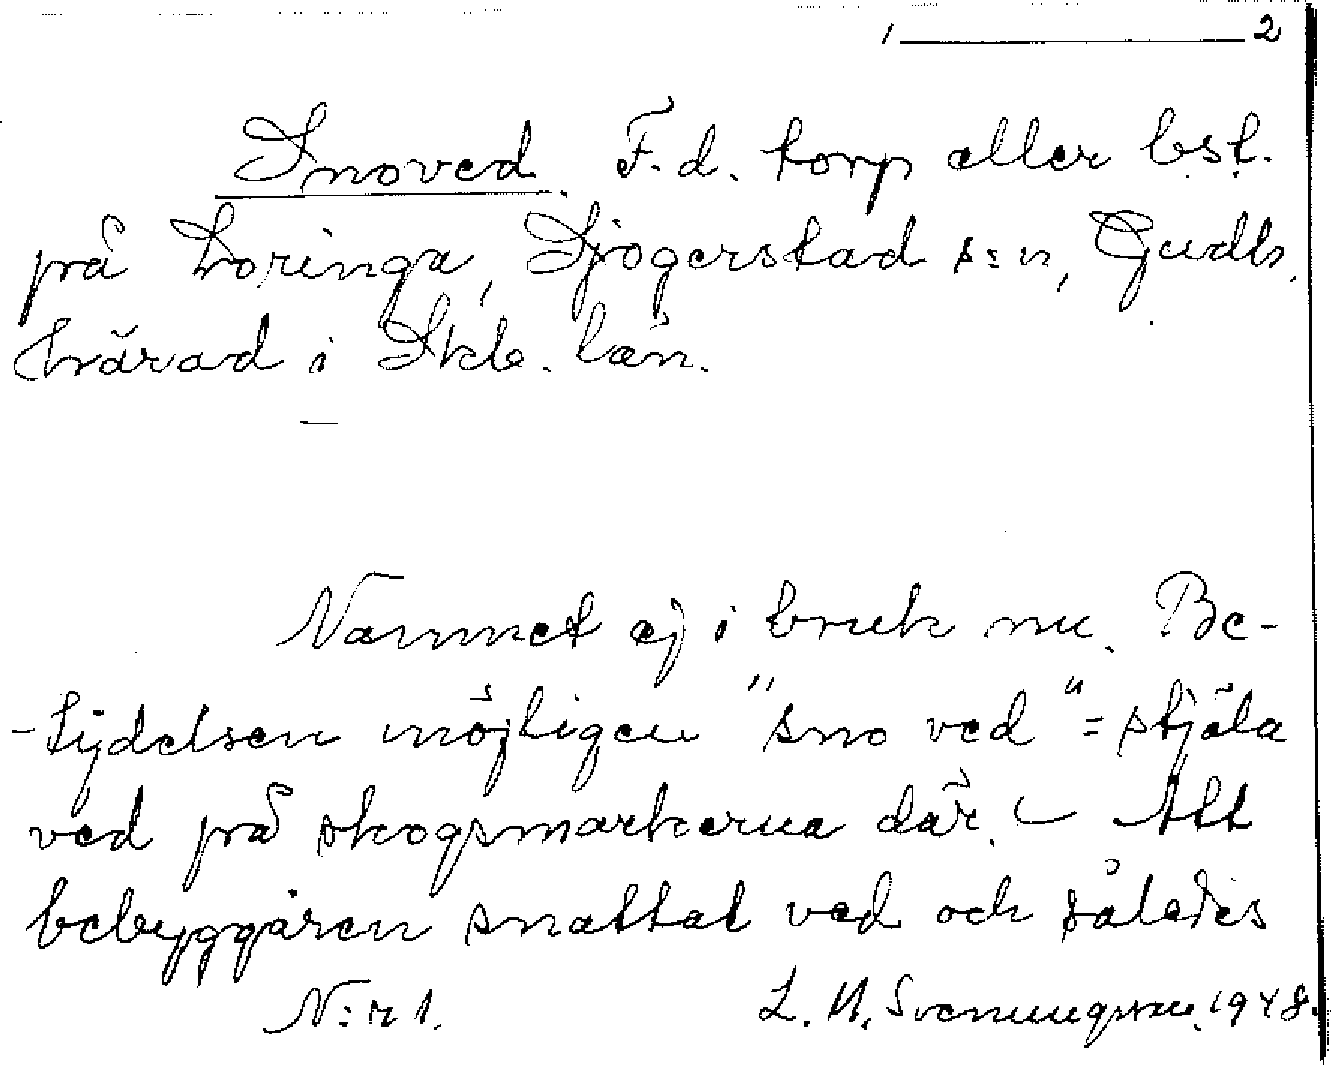 1 ———— 2
Snoved. F.d. torp eller bst.
på Loringa, Sjögerstad s:n, Gudh.
härad i Skb. län.
—
Namnet ej i bruk nu. Be-
-tydelsen möjligen "sno ved" = stjäla
ved på skogsmarkerna där. — Att
bebyggaren snattat ved och således
N:r 1. L. H. Svenungsson. 1948.